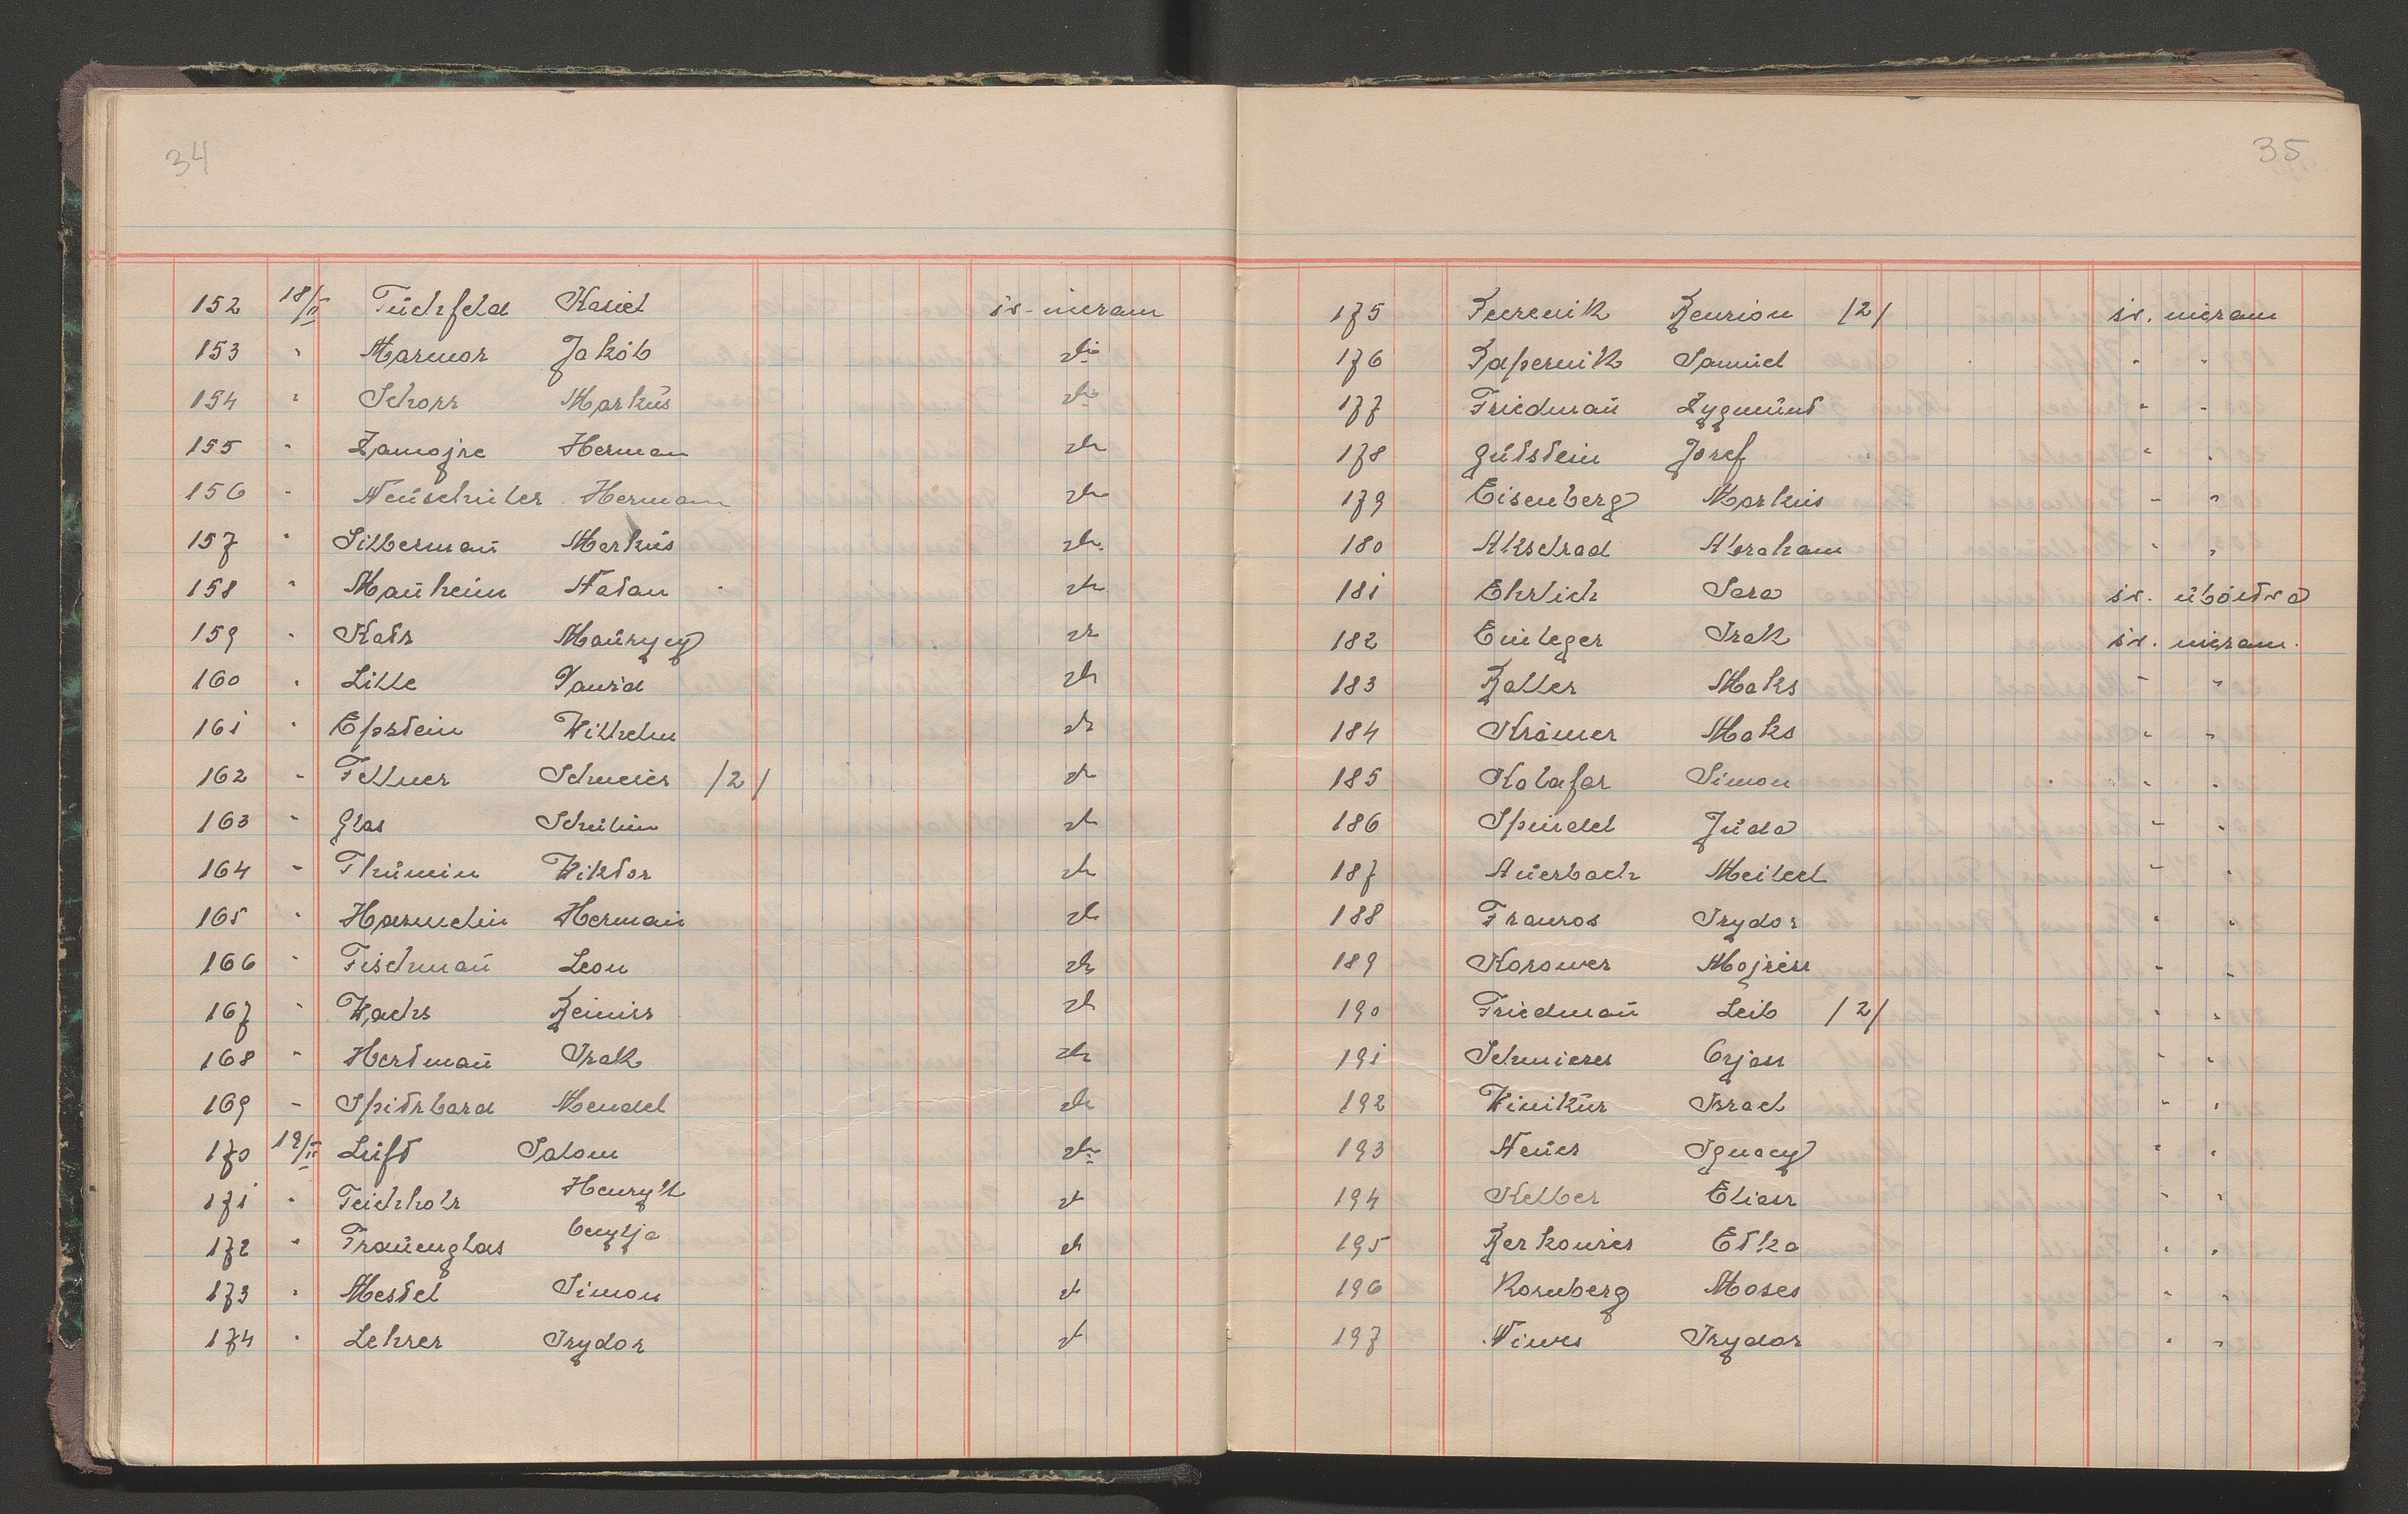 34
152 18/II Tuchfeld Kasiel św. moraln
153 " Marmor Jakób dto
154 " Schorr Markus dto
155 " Zamojre Herman dto
156 - Neuschüler Herman dto
157 " Silberman̄ Markus dto
158 " Man̄heim Natan dto
159 " Katz Maurycy dto
160 " Lille Dawid dto
161 " Epstein Wilhelm dto
162 - Fellner Schmeier /2/ dto
163 " Glas Schulim dto
164 - Thumin Wiktor dto
165 " Harmelin Herman dto
166 " Fischman̄ Leon dto
167 " Wachs dto
168 " Hertman̄ Izak dto
169 - Spitzbard Mendel dto
170 19/II Luft Salom dto
171 " Teichholz Henryk dto
172 " Frauenglas Cecylja dto
173 " Mestel Simon dto
174 " Lehrer Izydor dto
35
175 Benzion /2/ św. moraln
176 Papernik Samuel " "
177 Friedman̄ Zygmunt " "
178 Gutstein Josef " "
179 Eisenberg Markus " "
180 Akselrad Abraham " "
181 Ehrlich Sara św. ubóstwa
182 Einleger Izak św. moraln.
183 Baller Maks " "
184 Krämer Maks " "
185 Kolafar Simon " "
186 Spindel Juda " "
187 Auerbach Meilech " "
188 Izydor " "
189 Korower Mojżesz " "
190 Friedman̄ Leib /2/ " "
191 Schmierer Orjasz " "
192 Winikur Israel " "
193 Neuer Ignacy " "
194 Kelber Eliasz " "
195 Berkowicz Etka " "
196 Rosenberg Moses " "
197 Izydor " "